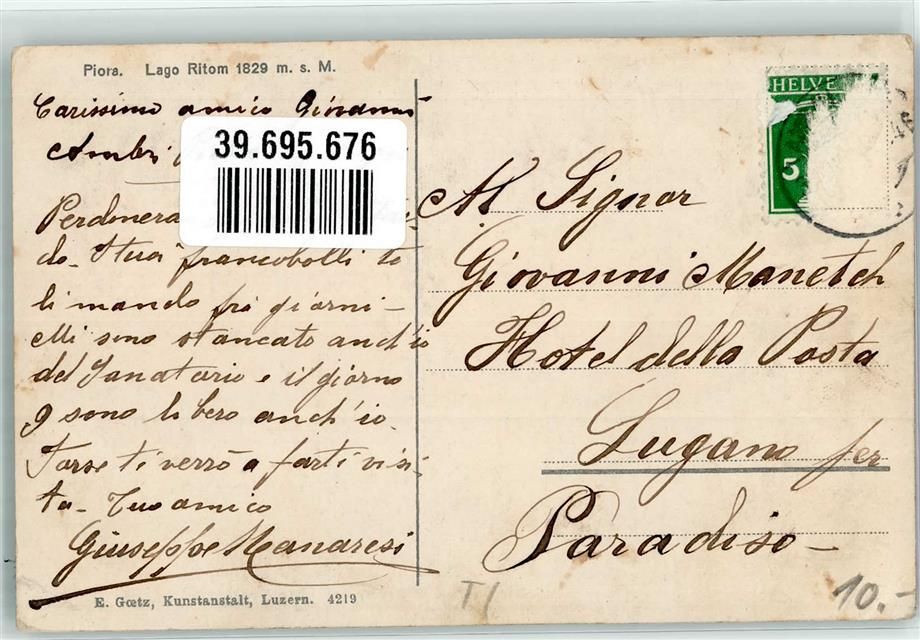 Piora. Lago Ritom 1829 m. s. M.
Carissimo amico Giovanni
Ambri
39.695.676
Perdonera
do. I tuoi francobolli te
li mando fra giorni -
Mi sono stancato anch'io
del Sanatorio e il giorno
9 sono libero anch'io.
Forse ti verrò a farti visi
ta - Tuo amico
Giuseppe Manaresi
E. Gœtz, Kunstanstalt, Luzern. 4219
HELVE
5
Al Signor
Giovanni Manetsch
Hotel della Posta
Lugano per
Paradiso -
T/
10.-